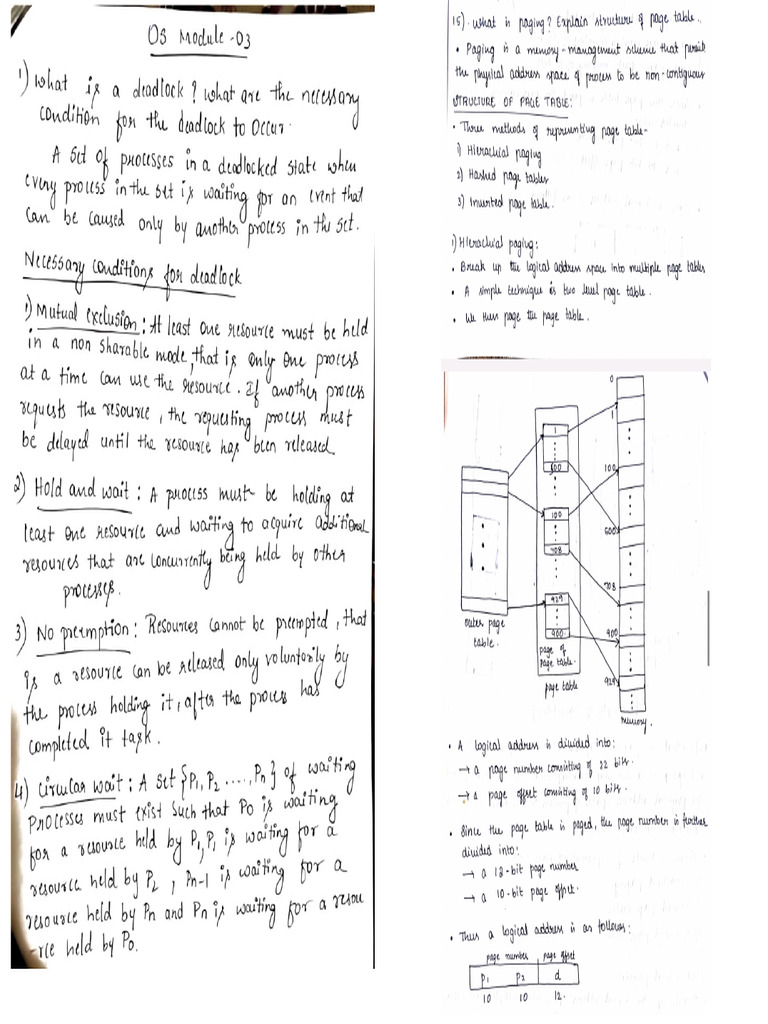 OS Module -03
1) What is a deadlock? What are the necessary
condition for the deadlock to occur.
A set of processes in a deadlocked state when
every process in the set is waiting for an event that
can be caused only by another process in the set.
Necessary conditions for deadlock
1) Mutual exclusion: At least one resource must be held
in a non sharable mode, that is only one process
at a time can use the resource. If another process
requests the resource, the requesting process must
be delayed until the resource has been released.
2) Hold and wait: A process must be holding at
least one resource and waiting to acquire additional
resources that are concurrently being held by other
processes.
3) No preemption: Resources cannot be preempted, that
is a resource can be released only voluntarily by
the process holding it, after the process has
completed it task.
4) Circular wait: A set {P1, P2 ...., Pn} of waiting
Processes must exist such that P0 is waiting
for a resource held by P1, P1 is waiting for a
resource held by P2, Pn-1 is waiting for a
resource held by Pn and Pn is waiting for a resou
-rce held by P0.
15). What is paging? Explain structure of page table..
• Paging is a memory-management scheme that permit
the physical address space of process to be non-contiguous
STRUCTURE OF PAGE TABLE:
• Three methods of representing page table-
1) Hierachial paging
2) Hashed page tables
3) Inverted page table.
1) Hierachial paging:
• Break up the logical address space into multiple page tables
• A simple technique is two level page table.
• We then page the page table.
0
1
1
500
100
100
500
708
708
929
900
900
929
outer page
table.
page of
page table.
page table
memory.
• A logical address is divided into:
→ a page number consisting of 22 bits.
→ a page offset consisting of 10 bits.
• Since the page table is paged, the page number is further
divided into:
→ a 12-bit page number
→ a 10-bit page offset.
• Thus a logical address is as follows:
page number page offset
P1 P2 d
10 10 12.